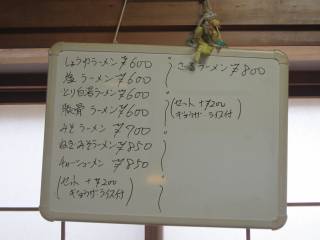 しょうゆラーメン ¥600
塩 ラーメン ¥600
とり白湯ラーメン ¥600
豚骨 ラーメン ¥600
みそ ラーメン ¥700
ねぎみそラーメン ¥850
チャーシューメン ¥850
(セット +¥200
ぎょうザ ライス付)
ラーメン ¥800
(セット +¥200
ぎょうザ ライス付)